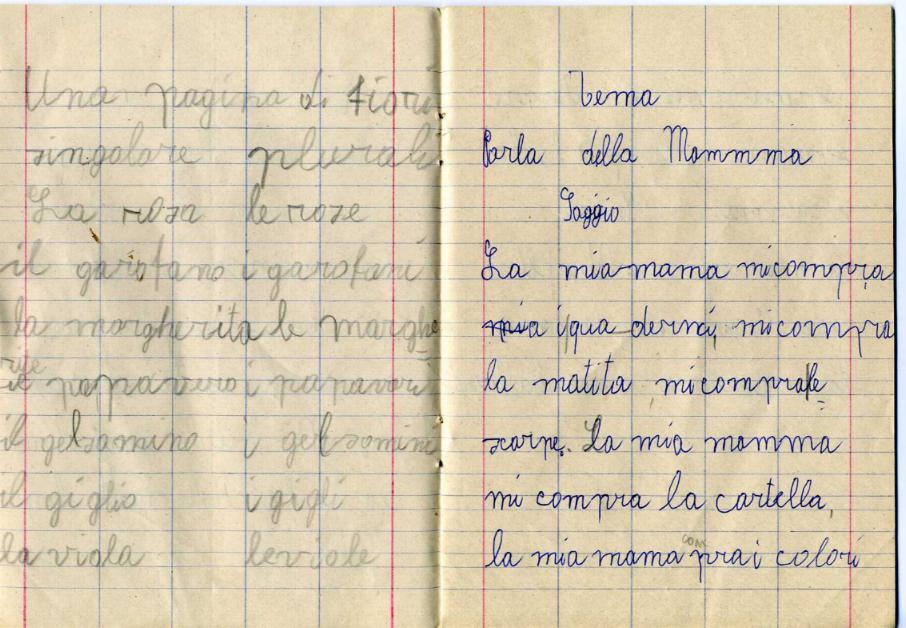 Una pagina di fiori
singolare plurale
La rosa le rose
il garofano i garofani
la margherita le marghe
rite
il papavero i papaveri
il gelsomino i gelsomini
il giglio i gigli
la viola le viole
Tema
Parla della Mamma
Saggio
La mia mama micompra
mia i qua derni, micompra
la matita, micomprale
scarpe. La mia mamma
mi compra la cartella,
com
la mia mama prai colori